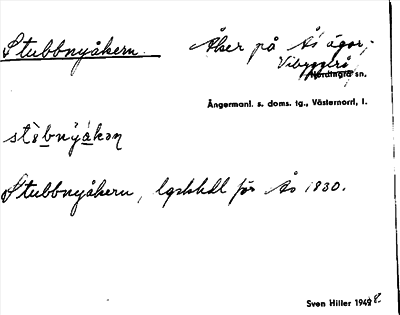 Stubbnyåkern. Åker på Ås ägor,
Vibyggerå
Nordingrå sn.
Ångermanl. s. doms. tg., Västernorrl, l.
Stubbnyåkern, lgskhdl för Ås 1830.
Sven Hiller 1948.